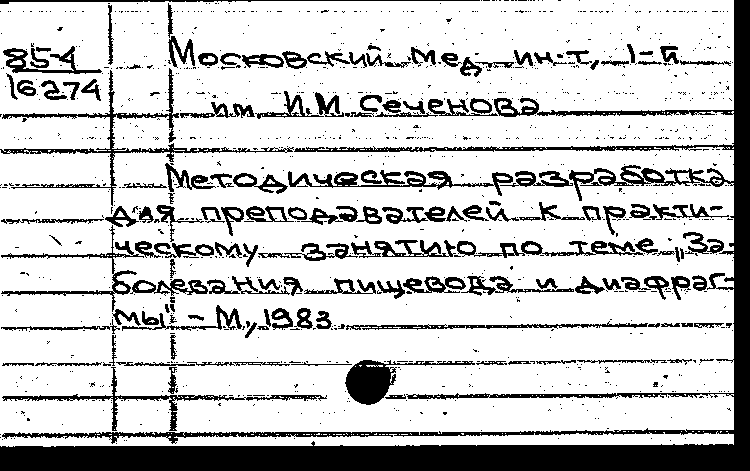 85-4
16274
Московский мед. ин-т, 1-й
им. И.М. Сеченова
Методическая разработка
для преподавателей к практи-
ческому занятию по теме „За-
болевания пищевода и диафраг-
мы" - М., 1983.